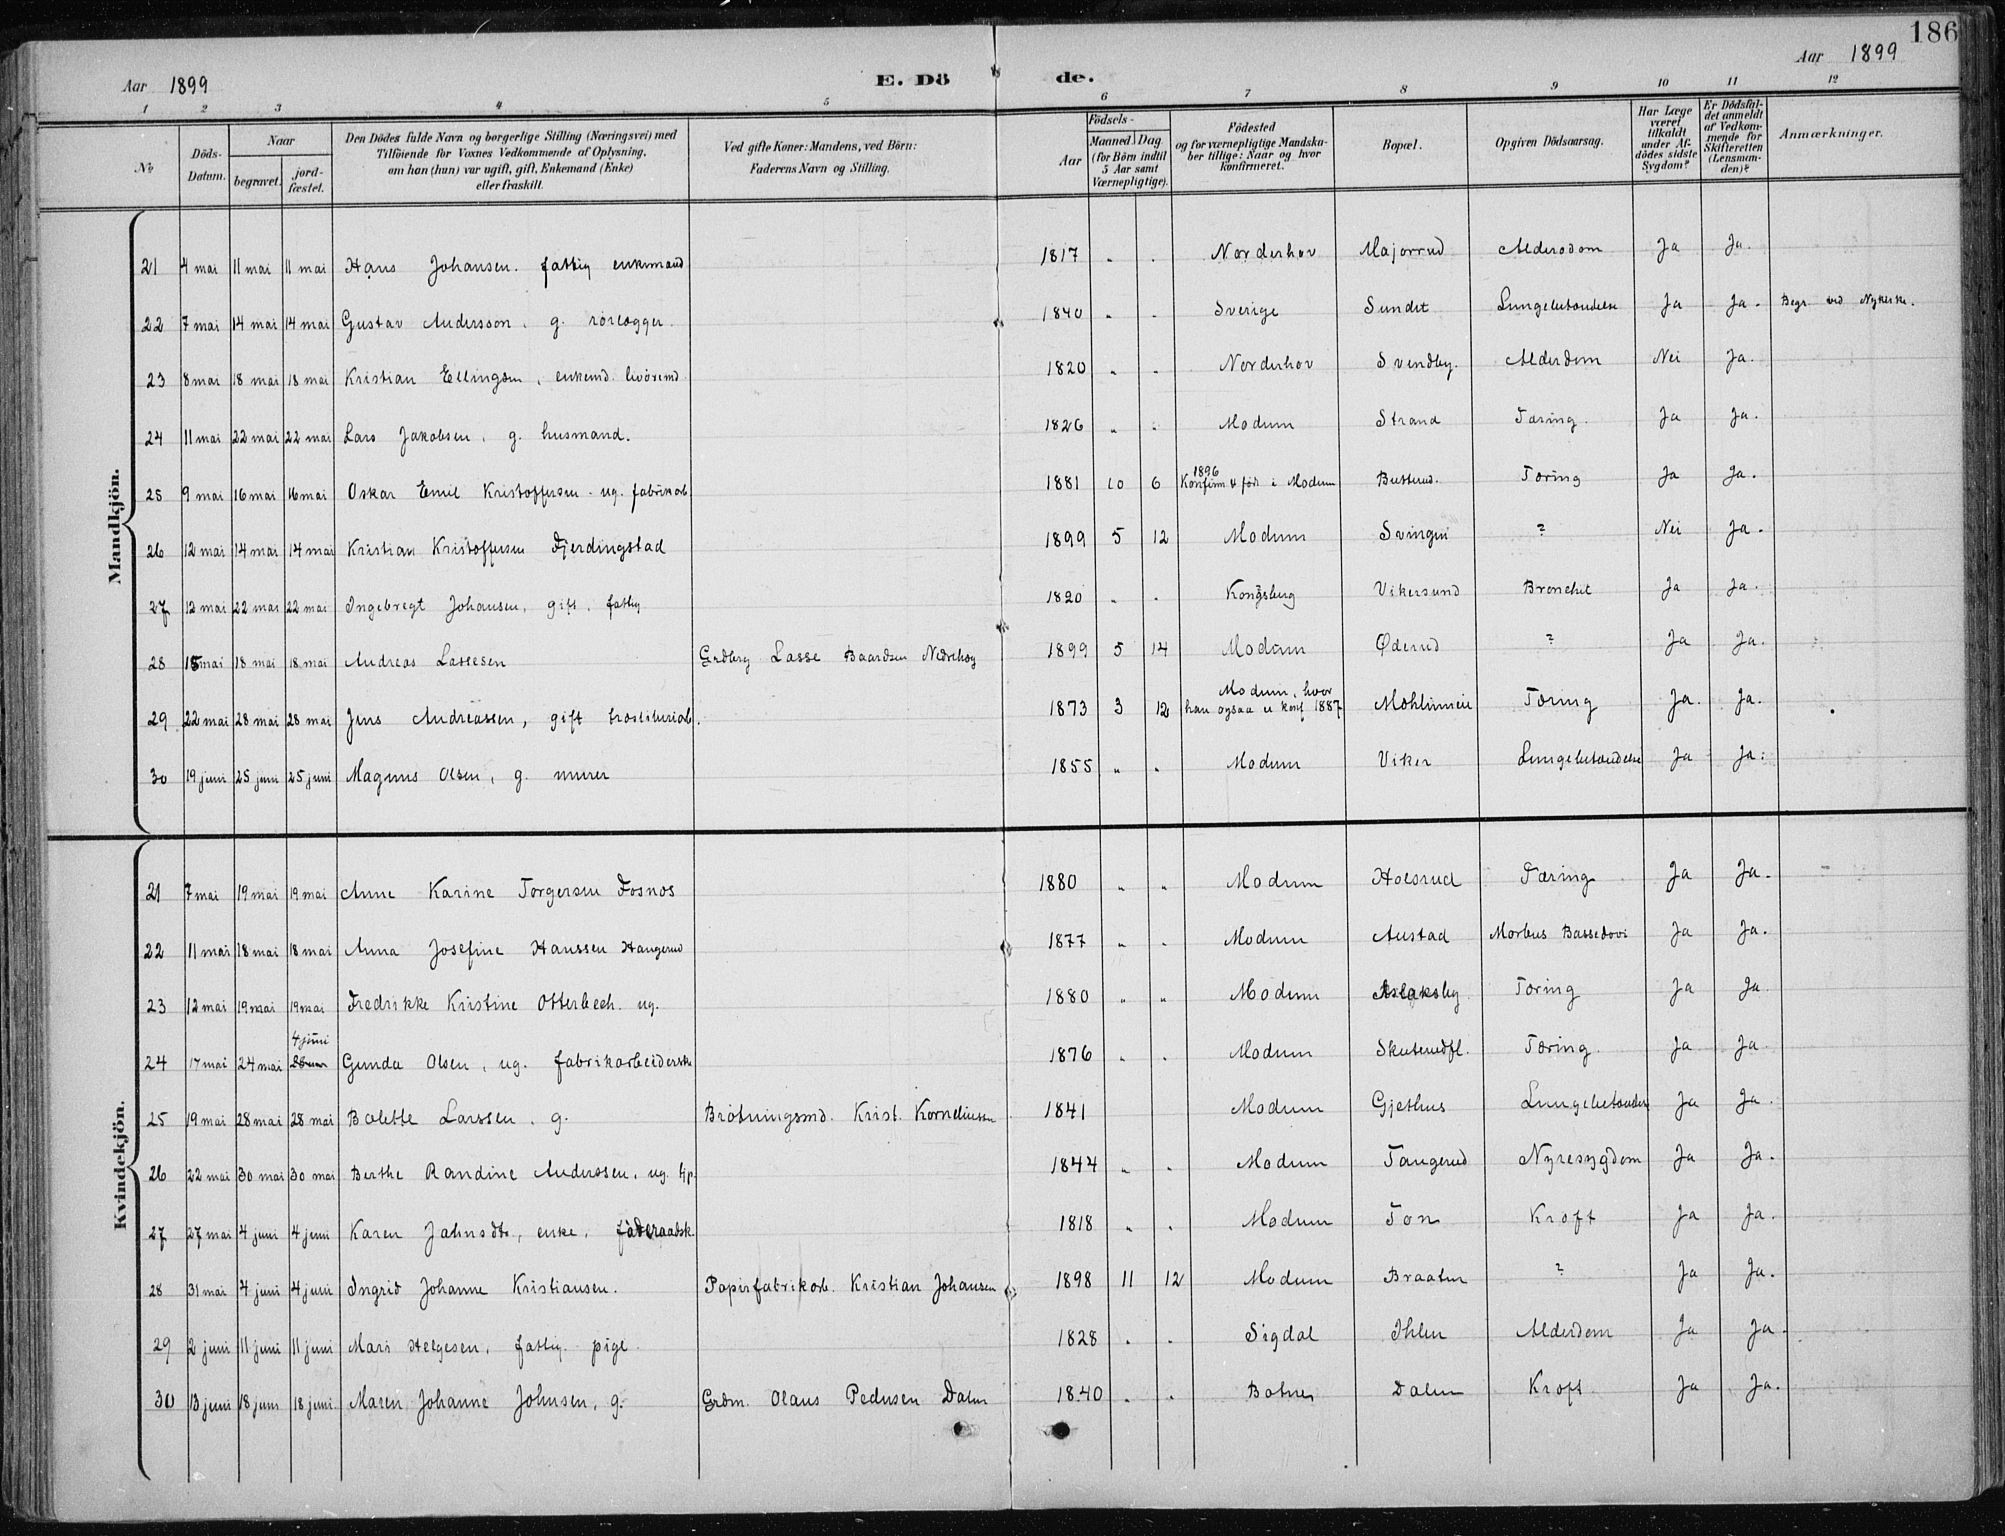 186
Aar 1899
E. Dö de.
Aar 1899
1 2 3 4 5 6 7 8 9 10 11 12
No
Döds-Datum.
Naar
begravet.
jord-fæstet.
Den Dödes fulde Navn og borgerlige Stilling (Næringsvei) med
Tilföiende for Voxnes Vedkommende af Oplysning,
om han (hun) var ugift, gift, Enkemand (Enke)
eller fraskilt.
Ved gifte Koner: Mandens, ved Börn:
Faderens Navn og Stilling.
Födsels-
Aar
Maaned. Dag
(for Börn indtil
5 Aar samt
Værnepligtige).
Födested
og for værnepligtige Mandska-
ber tillige: Naar og hvor
konfirmeret.
Bopæl.
Opgiven Dödsaarsag.
Har Læge
været
tilkaldt
under Af-
dödes sidste
Sygdom?
Er Dödsfal-
det anmeldt
af Vedkom-
mende for
Skifteretten
(Lensman-
den)?
Anmærkninger.
Mandkjön.
21 4 mai 11 mai 11 mai Hans Johansen. fattig enkemand 1817 " . Norderhov Majorrud Alderdom Ja Ja.
22 7 mai 14 mai 14 mai Gustav Andersson, g. rørlægger. 1840 " . Sverige Sundet Lungebetændelse Ja Ja. Begr. ved Nykirke.
23 8 mai 18 mai 18 mai Kristian Ellingsen, enkemd. livøremd 1820 " . Norderhov Svendby. Alderdom Nei Ja.
24 11 mai 22 mai 22 mai Lars Jakobsen, g. husmand. 1826 " . Modum Strand Tæring. Ja Ja.
25 9 mai 16 mai 16 mai Oskar Emil Kristoffersen ug. fabrikarb 1881 10 6 1896 Konfirm & fød i Modum Butterud. Tæring Ja Ja.
26 12 mai 14 mai 14 mai Kristian Kristoffersen Fjerdingstad 1899 5 12 Modum Svingen ? Nei Ja.
27 12 mai 22 mai 22 mai Ingebregt Johansen, gift, fattig 1820 " . Kongsberg Vikersund Bronchit Ja Ja.
28 15 mai 18 mai 18 mai Andreas Lassesen Grdbrg Lasse Baardsen Nedrehog 1899 5 14 Modum Øderud ? Ja Ja.
29 22 mai 28 mai 28 mai Jens Andreassen, gift træsliberiarb. 1873 3 12 Modum, hvor han ogsaa er konf 1887 Mæhlumeie Tæring Ja. Ja.
30 19 juni 25 juni 25 juni Magnus Olsen, g. murer 1855 " . Modum Viker Lungebetændelse Ja Ja.
Kvindekjön.
21 7 mai 19 mai 19 mai Anne Karine Torgersen Fosnos 1880 " " Modum Holsrud Tæring Ja Ja.
22 11 mai 18 mai 18 mai Anna Josefine Hanssen Haugerud 1877 " . Modum Austad Morbus Bassedovi Ja Ja.
23 12 mai 19 mai 19 mai Fredrikke Kristine Otterbech. ug. 1880 " " Modum Aslaksby Tæring Ja Ja
24 17 mai 24 mai 4 juni Gunda Olsen, ug. fabrikarbeiderske 1876 " . Modum Skuterudfl. Tæring. Ja Ja
25 19 mai 28 mai 28 mai Bolette Larssen. g. Brøtningsmd. Krist. Korneliusen 1841 Modum Gjethus Lungebetændelse Ja Ja.
26 22 mai 30 mai 30 mai Berthe Randine Anderssen, ug. tjp. 1844 " . Modum Tangerud Nyresygdom Ja Ja.
27 27 mai 4 juni 4 juni Karen Jahnsdt., enke, føderaadsk. 1818 " . Modum Ton Kræft Ja Ja.
28 31 mai 4 juni 4 juni Ingrid Johanne Kristiansen. Papirfabrikarb. Kristian Johansen 1898 11 12 Modum Braaten ? Ja Ja.
29 2 juni 11 juni 11 juni Mari Helgesen, fattig pige. 1828 . . Sigdal Ihlen Alderdom Ja Ja.
30 13 juni 18 juni 18 juni Maren Johanne Johnsen, g. Grdm. Olaus Pedersen Dalen 1840 . . Botne Dalen Kræft Ja Ja.